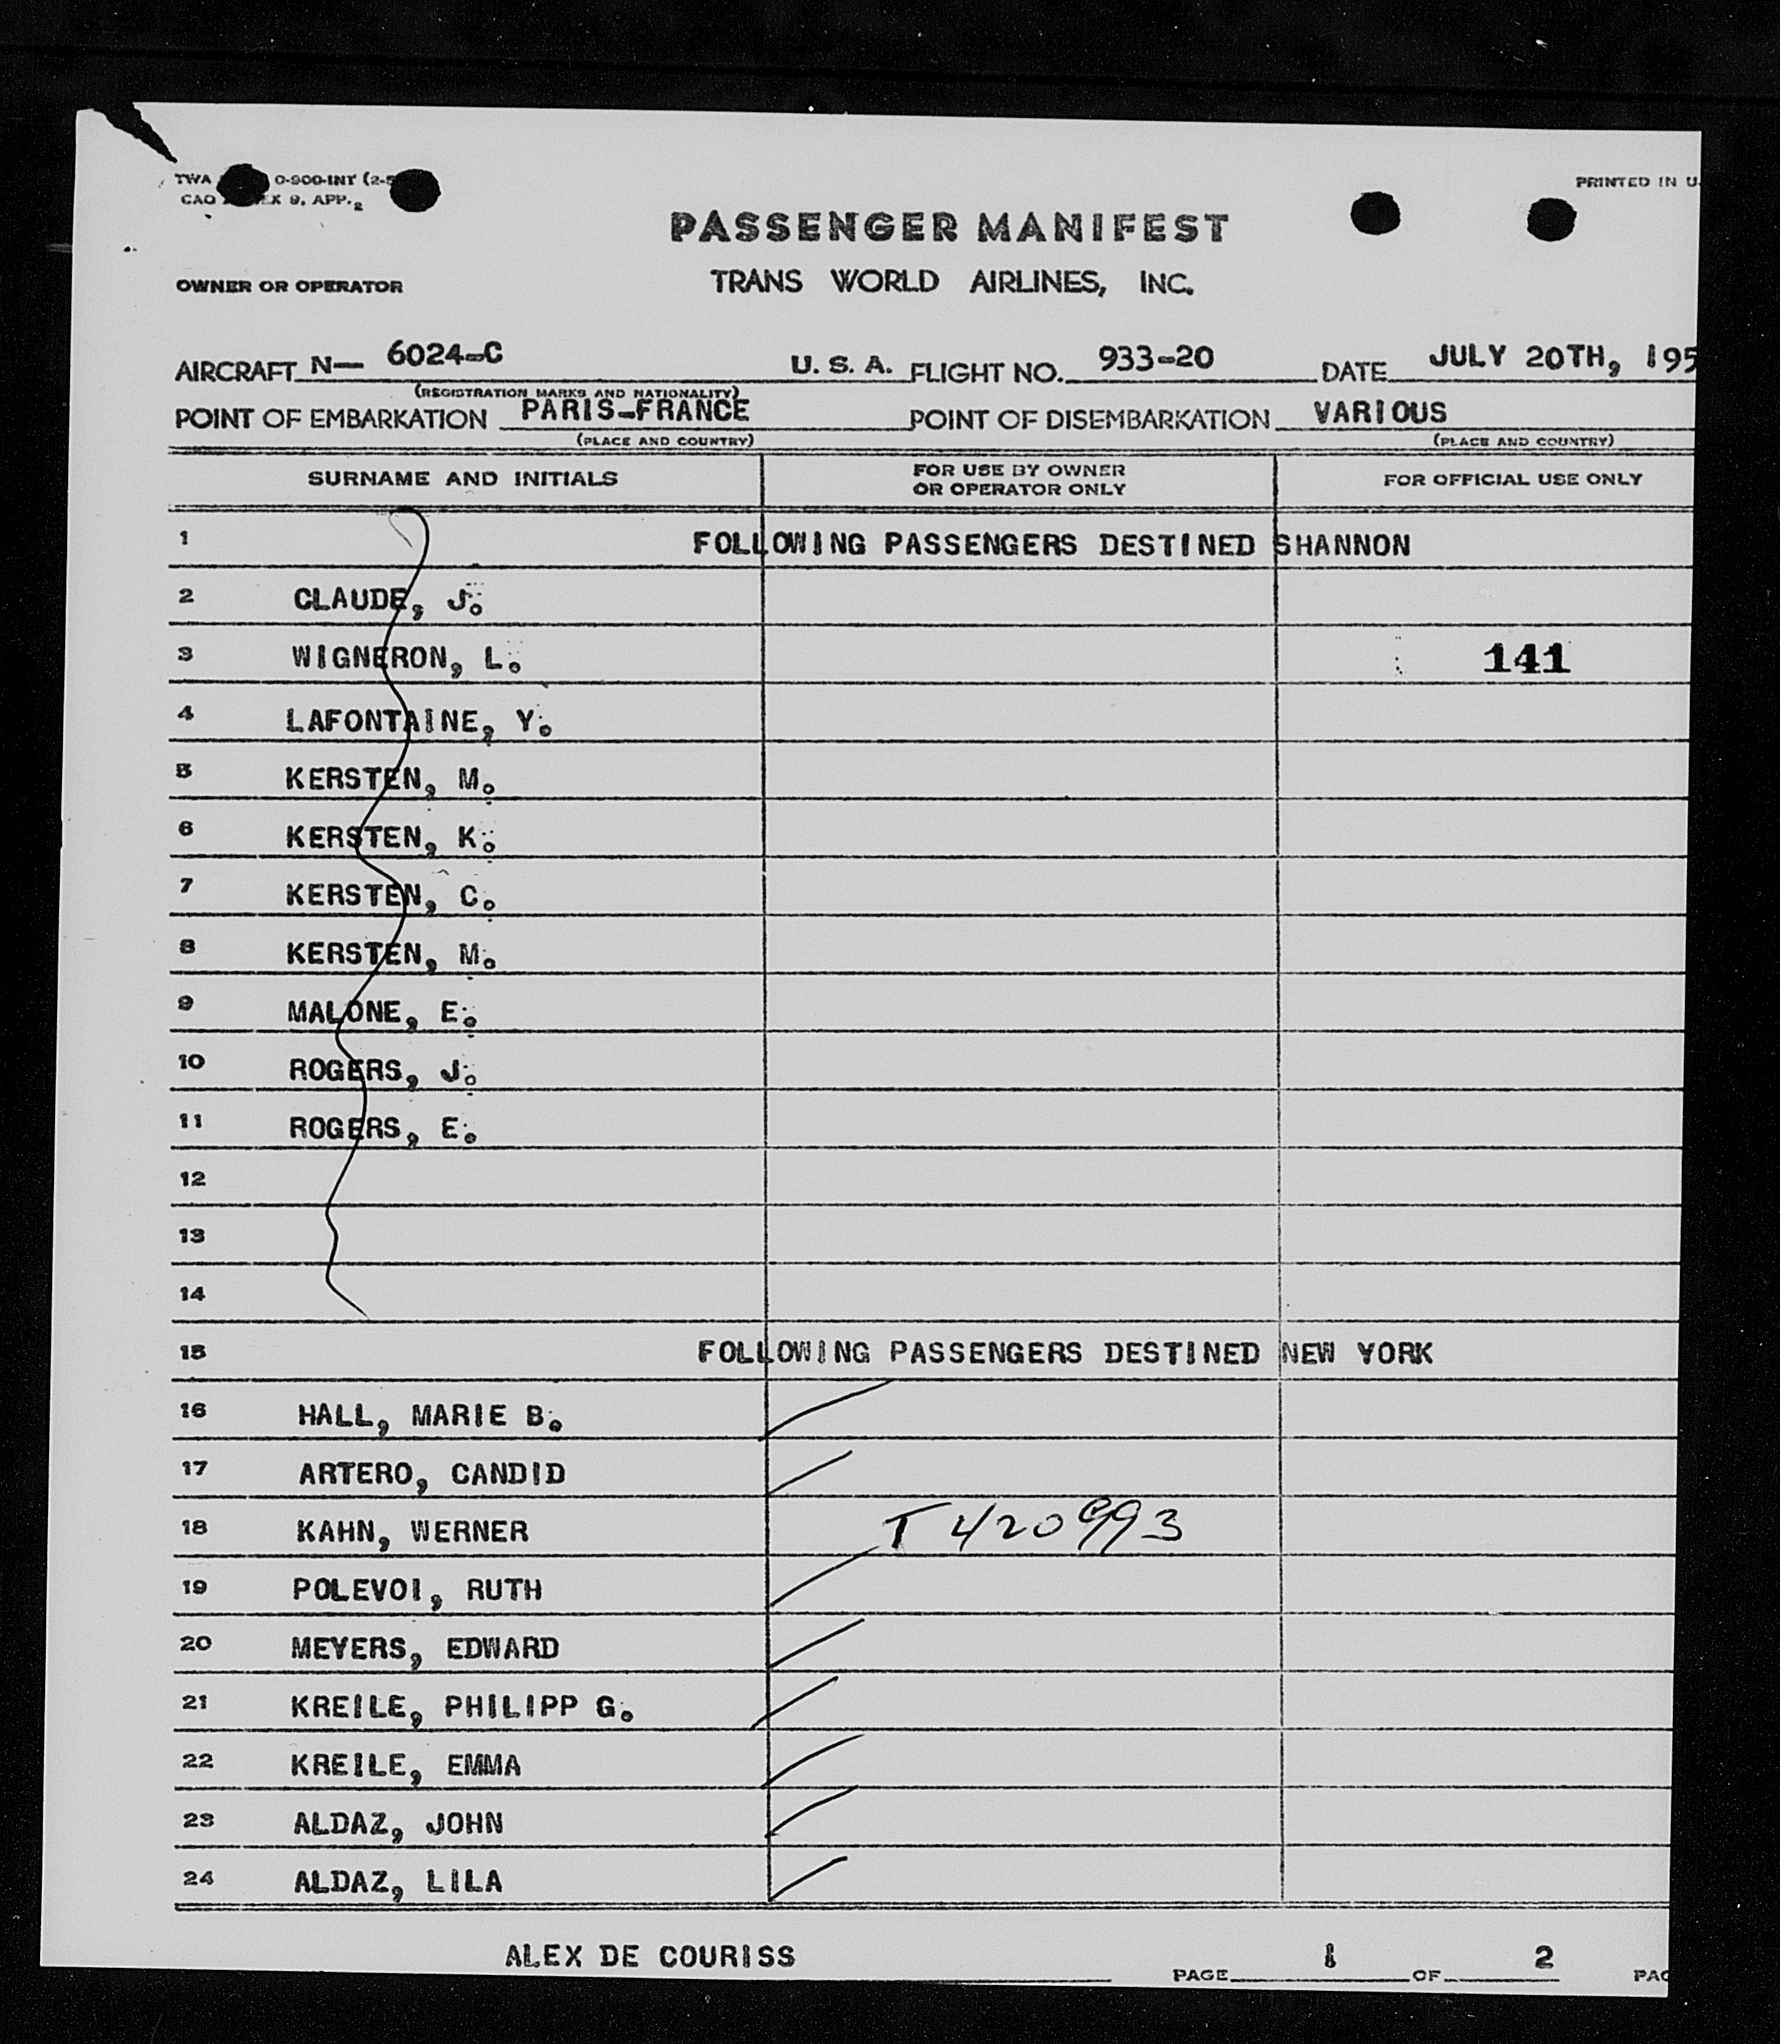 TWA 0-900-INT (2-5
CAO EX 9, APP. 2
PRINTED IN U.
PASSENGER MANIFEST
OWNER OR OPERATOR
TRANS WORLD AIRLINES, INC.
AIRCRAFT N— 6024-C U. S. A. FLIGHT NO. 933-20 DATE JULY 20TH, 195
(REGISTRATION MARKS AND NATIONALITY)
POINT OF EMBARKATION PARIS-FRANCE POINT OF DISEMBARKATION VARIOUS
(PLACE AND COUNTRY) (PLACE AND COUNTRY)
SURNAME AND INITIALS FOR USE BY OWNER OR OPERATOR ONLY FOR OFFICIAL USE ONLY
1 FOLLOWING PASSENGERS DESTINED SHANNON
2 CLAUDE, J.
3 WIGNERON, L. 141
4 LAFONTAINE, Y.
5 KERSTEN, M.
6 KERSTEN, K.
7 KERSTEN, C.
8 KERSTEN, M.
9 MALONE, E.
10 ROGERS, J.
11 ROGERS, E.
12
13
14
15 FOLLOWING PASSENGERS DESTINED NEW YORK
16 HALL, MARIE B.
17 ARTERO, CANDID
18 KAHN, WERNER T420993
19 POLEVOI, RUTH
20 MEYERS, EDWARD
21 KREILE, PHILIPP G.
22 KREILE, EMMA
23 ALDAZ, JOHN
24 ALDAZ, LILA
ALEX DE COURISS
PAGE 1 OF 2 PAG